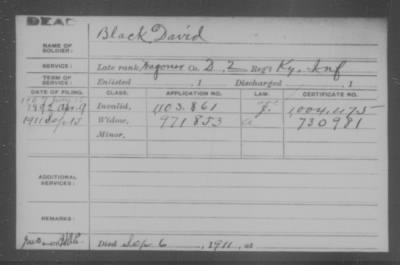 DEAC
NAME OF SOLDIER: Black David
SERVICE: Late rank, Wagoner Co. D, 2 Reg't Ky. Inf
TERM OF SERVICE: Enlisted , 1 Discharged , 1
DATE OF FILING. CLASS. APPLICATION NO. LAW. CERTIFICATE NO.
Apr. 9 Invalid, 1103.861 1004.1175
1911 Sep 15 Widow, 971853 730981
Minor,
ADDITIONAL SERVICES:
REMARKS:
Died Sep 6 , 1911, at